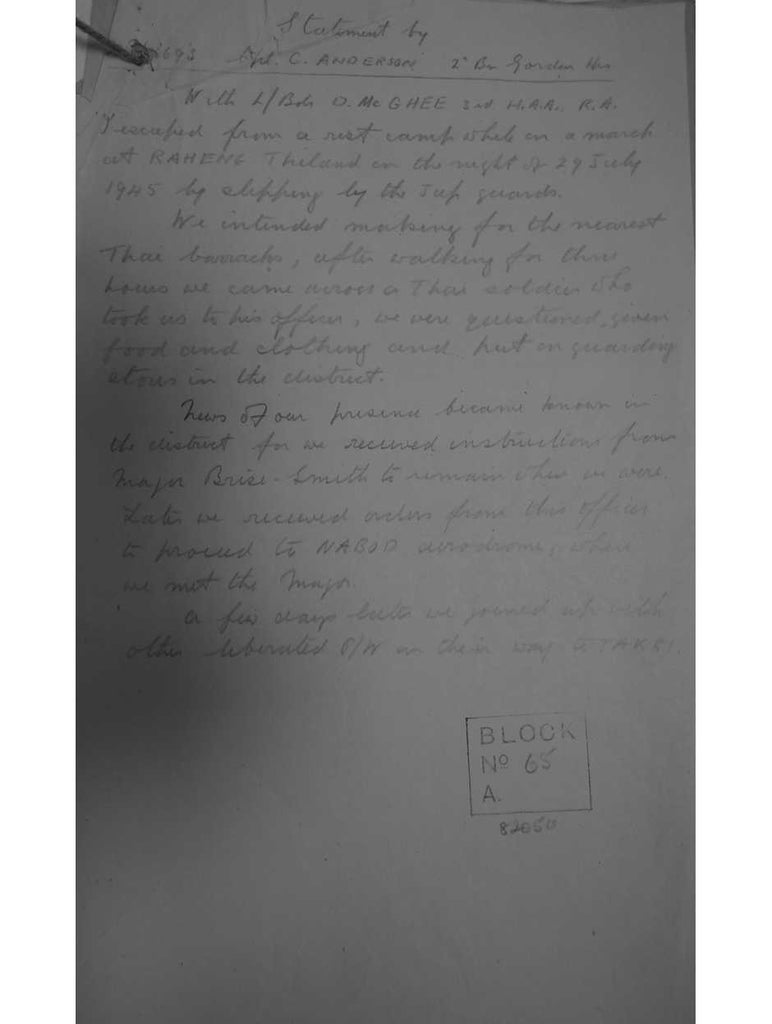 Statement by
Cpl. C. ANDERSON 2nd Bn Gordon Hrs
With L/Bdr D. McGHEE 3rd H.A.A. R.A.
I escaped from a rest camp while on a march
at RAHENG Thiland on the night of 29 July
1945 by slipping by the Jap guards.
We intended making for the nearest
Thai barracks, after walking for three
hours we came across a Thai soldier who
took us to his officer, we were questioned, given
food and clothing and put on guarding
stores in the district.
News of our presence became known in
the district for we received instructions from
Major Brise-Smith to remain where we were.
Later we received orders from this officer
to proceed to NABOD aerodrome, where
we met the Major.
A few days later we joined up with
other liberated P/W on their way to TAKRI.
BLOCK
No 65
A.
82050